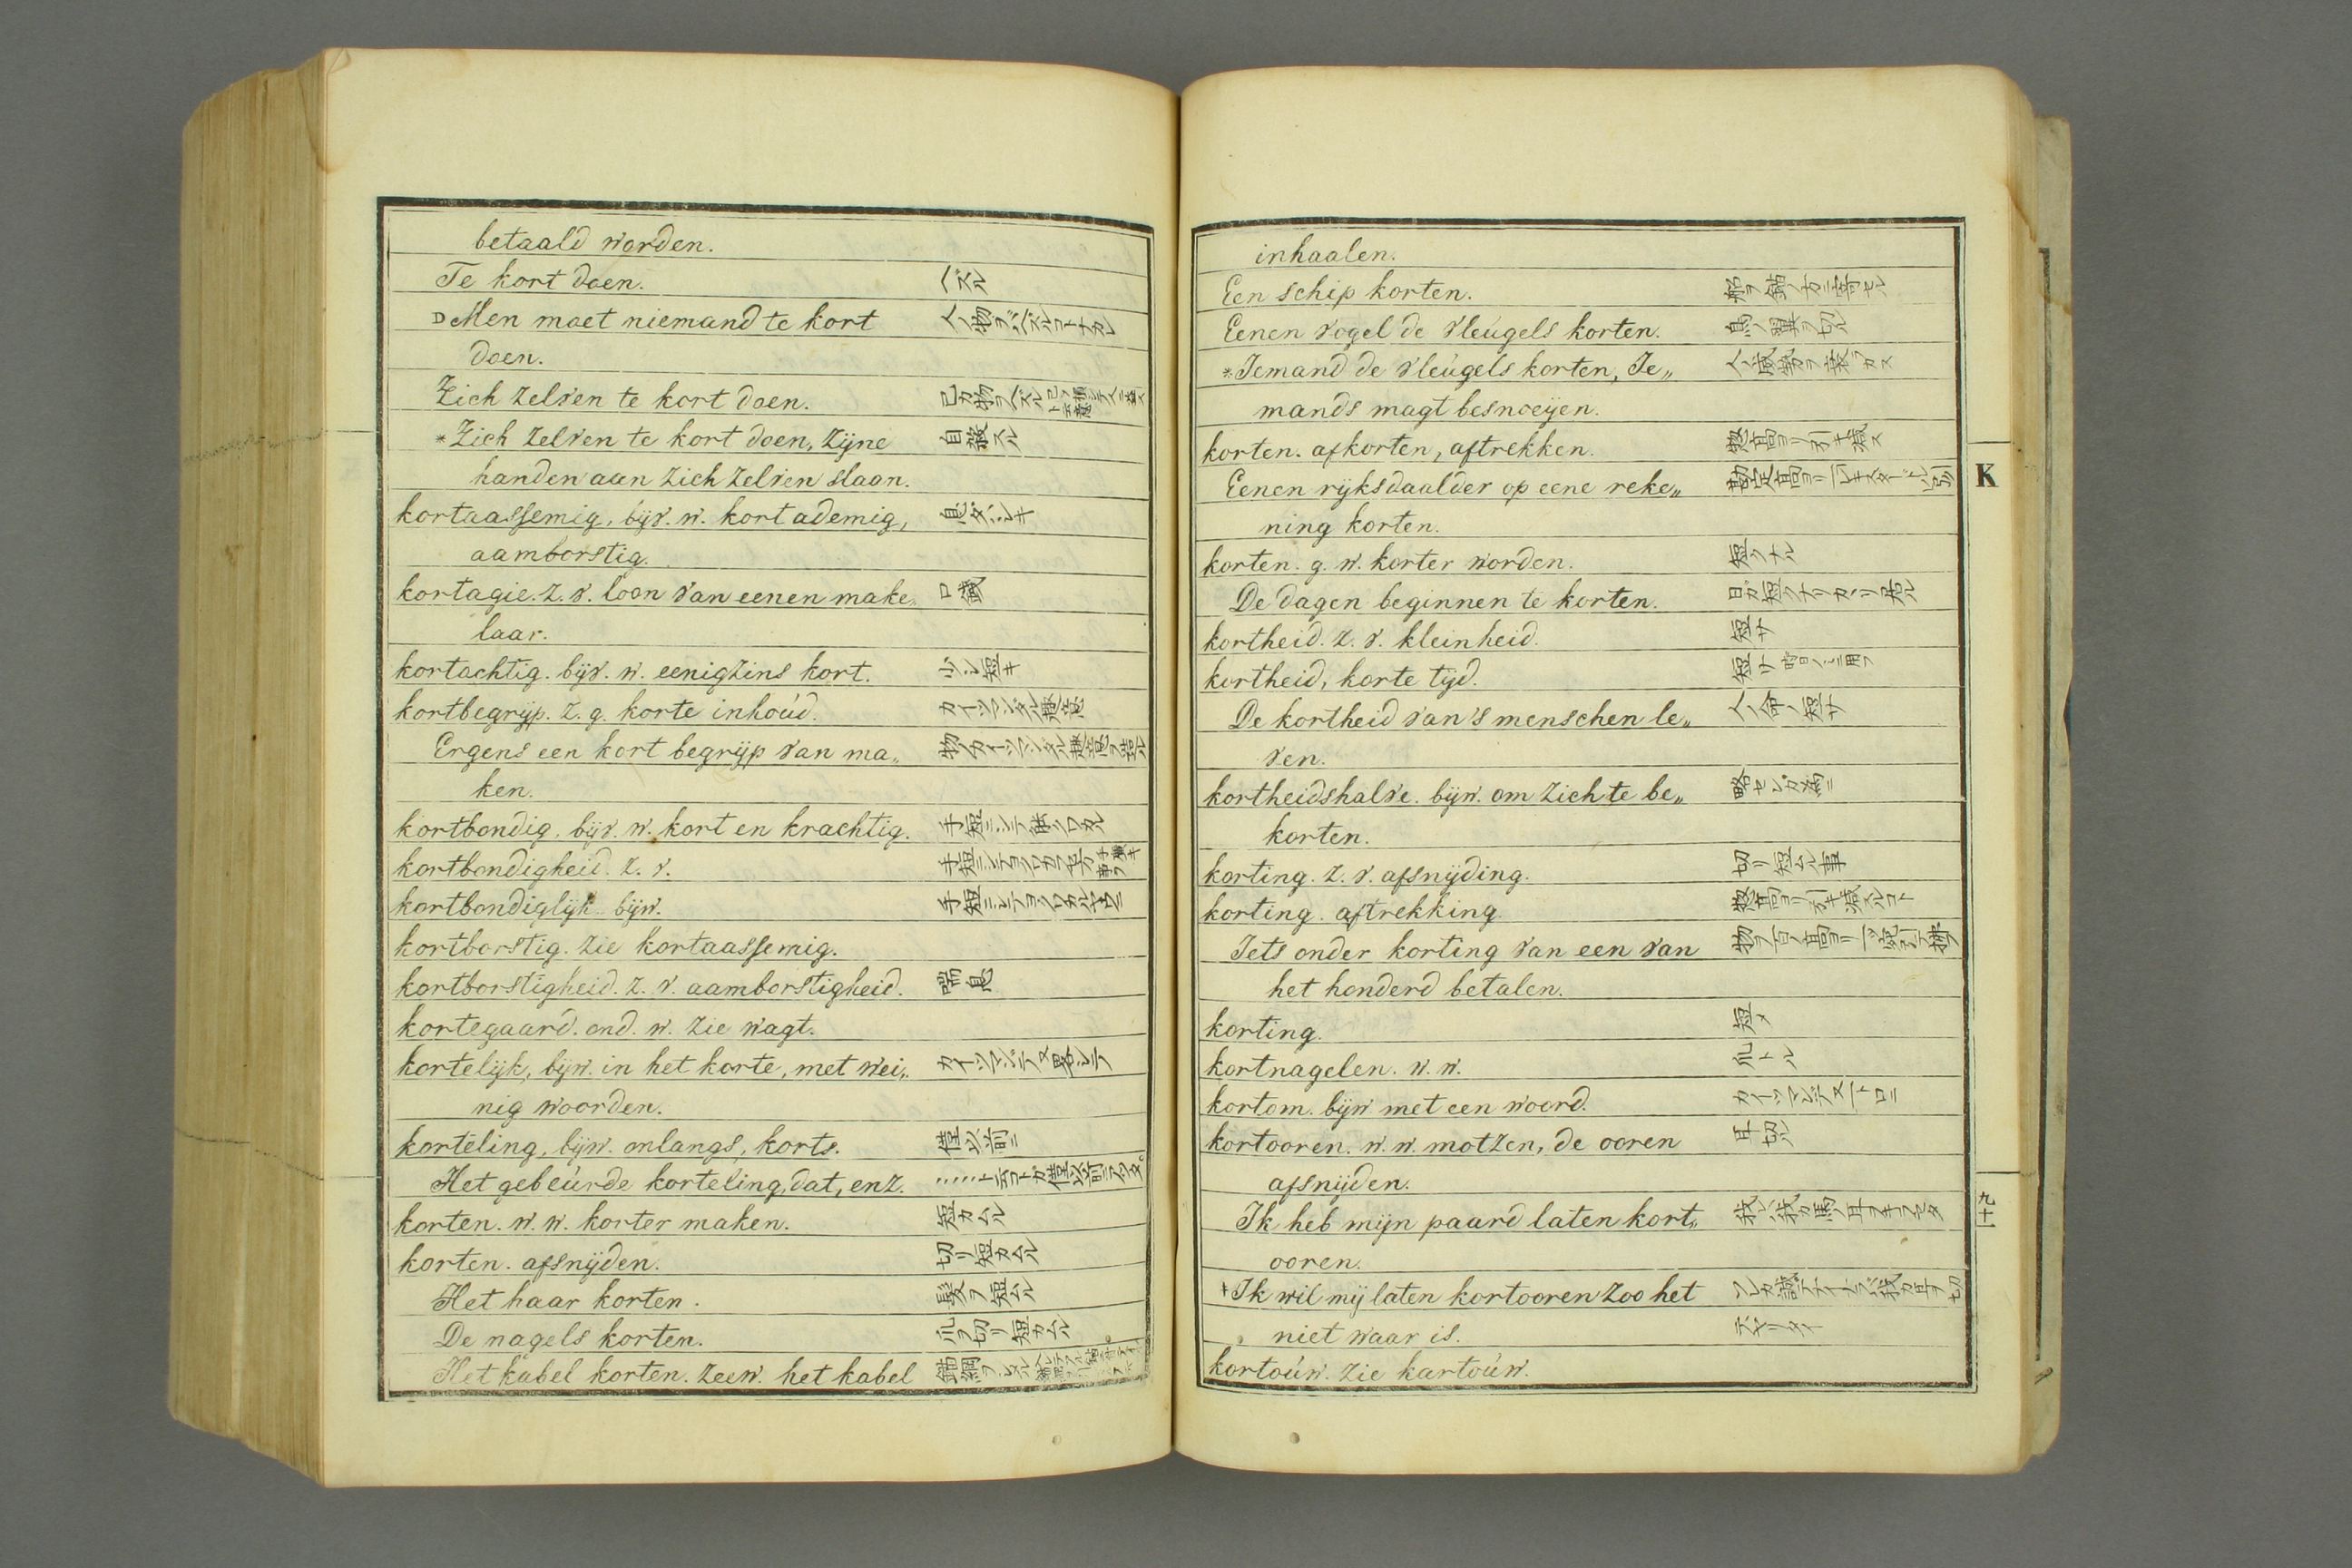 betaald worden.
Te kort doen. ヘズル
Men moet niemand te kort 人ノ物ヲバヘズルコトナカレ
doen.
Zich zelven te kort doen. 己ガ物ヲヘズル
*Zich zelven te kort doen, zijne 自殺スル
handen aan zich zelven slaan.
kortaassemig, bijv. w. kort ademig, 息ダハシキ
aamborstig.
kortagie. z. v. loon van eenen make„ 口錢
laar.
kortachtig. bijv. w. eenigzins kort. 少シ短キ
kortbegrijp. z. g. korte inhoúd. カイツマンダル趣意
Ergens een kort begrijp van ma„ 物ノカイツマンダル趣意ヲ語ル
ken.
kortbondig, bijv. w. kort en krachtig. 手短ニシテ能クワカル
kortbondigheid. z. v.
kortbondiglijk. bijw.
kortborstig. zie kortaassemig.
kortborstigheid. z. v. aamborstigheid. 喘息
kortegaard. ond. w. zie wagt.
kortelijk, bijw. in het korte, met wei„
nig woorden.
korteling, bijw. onlangs, korts. 僅以前ニ
Het gebeúrde korteling, dat, enz.
korten. w. w. korter maken. 短カムル
korten. afsnijden. 切リ短カムル
Het haar korten. 髮ヲ短ムル
De nagels korten. 爪ヲ切リ短カムル
Het kabel korten. zeew. het kabel
inhaalen.
Een schip korten. 船ヲ錨ノ方ニ寄セル
Eenen vogel de vleúgels korten. 鳥ノ翼ヲ切ル
*Iemand de vleúgels korten, Ie„ 人ノ威勢ヲ落ツカス
mands magt besnoeijen.
korten. afkorten, aftrekken. 惣高ヨリ引キ減ス
Eenen rijksdaalder op eene reke„
ning korten.
korten. g. w. korter worden. 短クナル
De dagen beginnen te korten. 日ガ短クナリカヽリ居ル
kortheid. z. v. kleinheid. 短サ
kortheid, korte tijd. 短サ 時日ノヿニ用フ
De kortheid van 's menschen le„ 人ノ命ノ短サ
ven.
kortheidshalve. bijw. om zich te be„ 略センガ為ニ
korten.
korting. z. v. afsnijding. 切リ短ムル事
korting. aftrekking. 惣高ヨリ引キ減スルコト
Iets onder korting van een van
het honderd betalen.
korting. 短メ
kortnagelen. w. w. 爪トル
kortom. bijw met een woord.
kortooren. w. w. motzen, de ooren 耳切ル
afsnijden.
Ik heb mijn paard laten kort„
ooren.
*Ik wil mij laten kortooren zoo het
niet waar is.
kortoúw. zie kartoúw.
K
九十